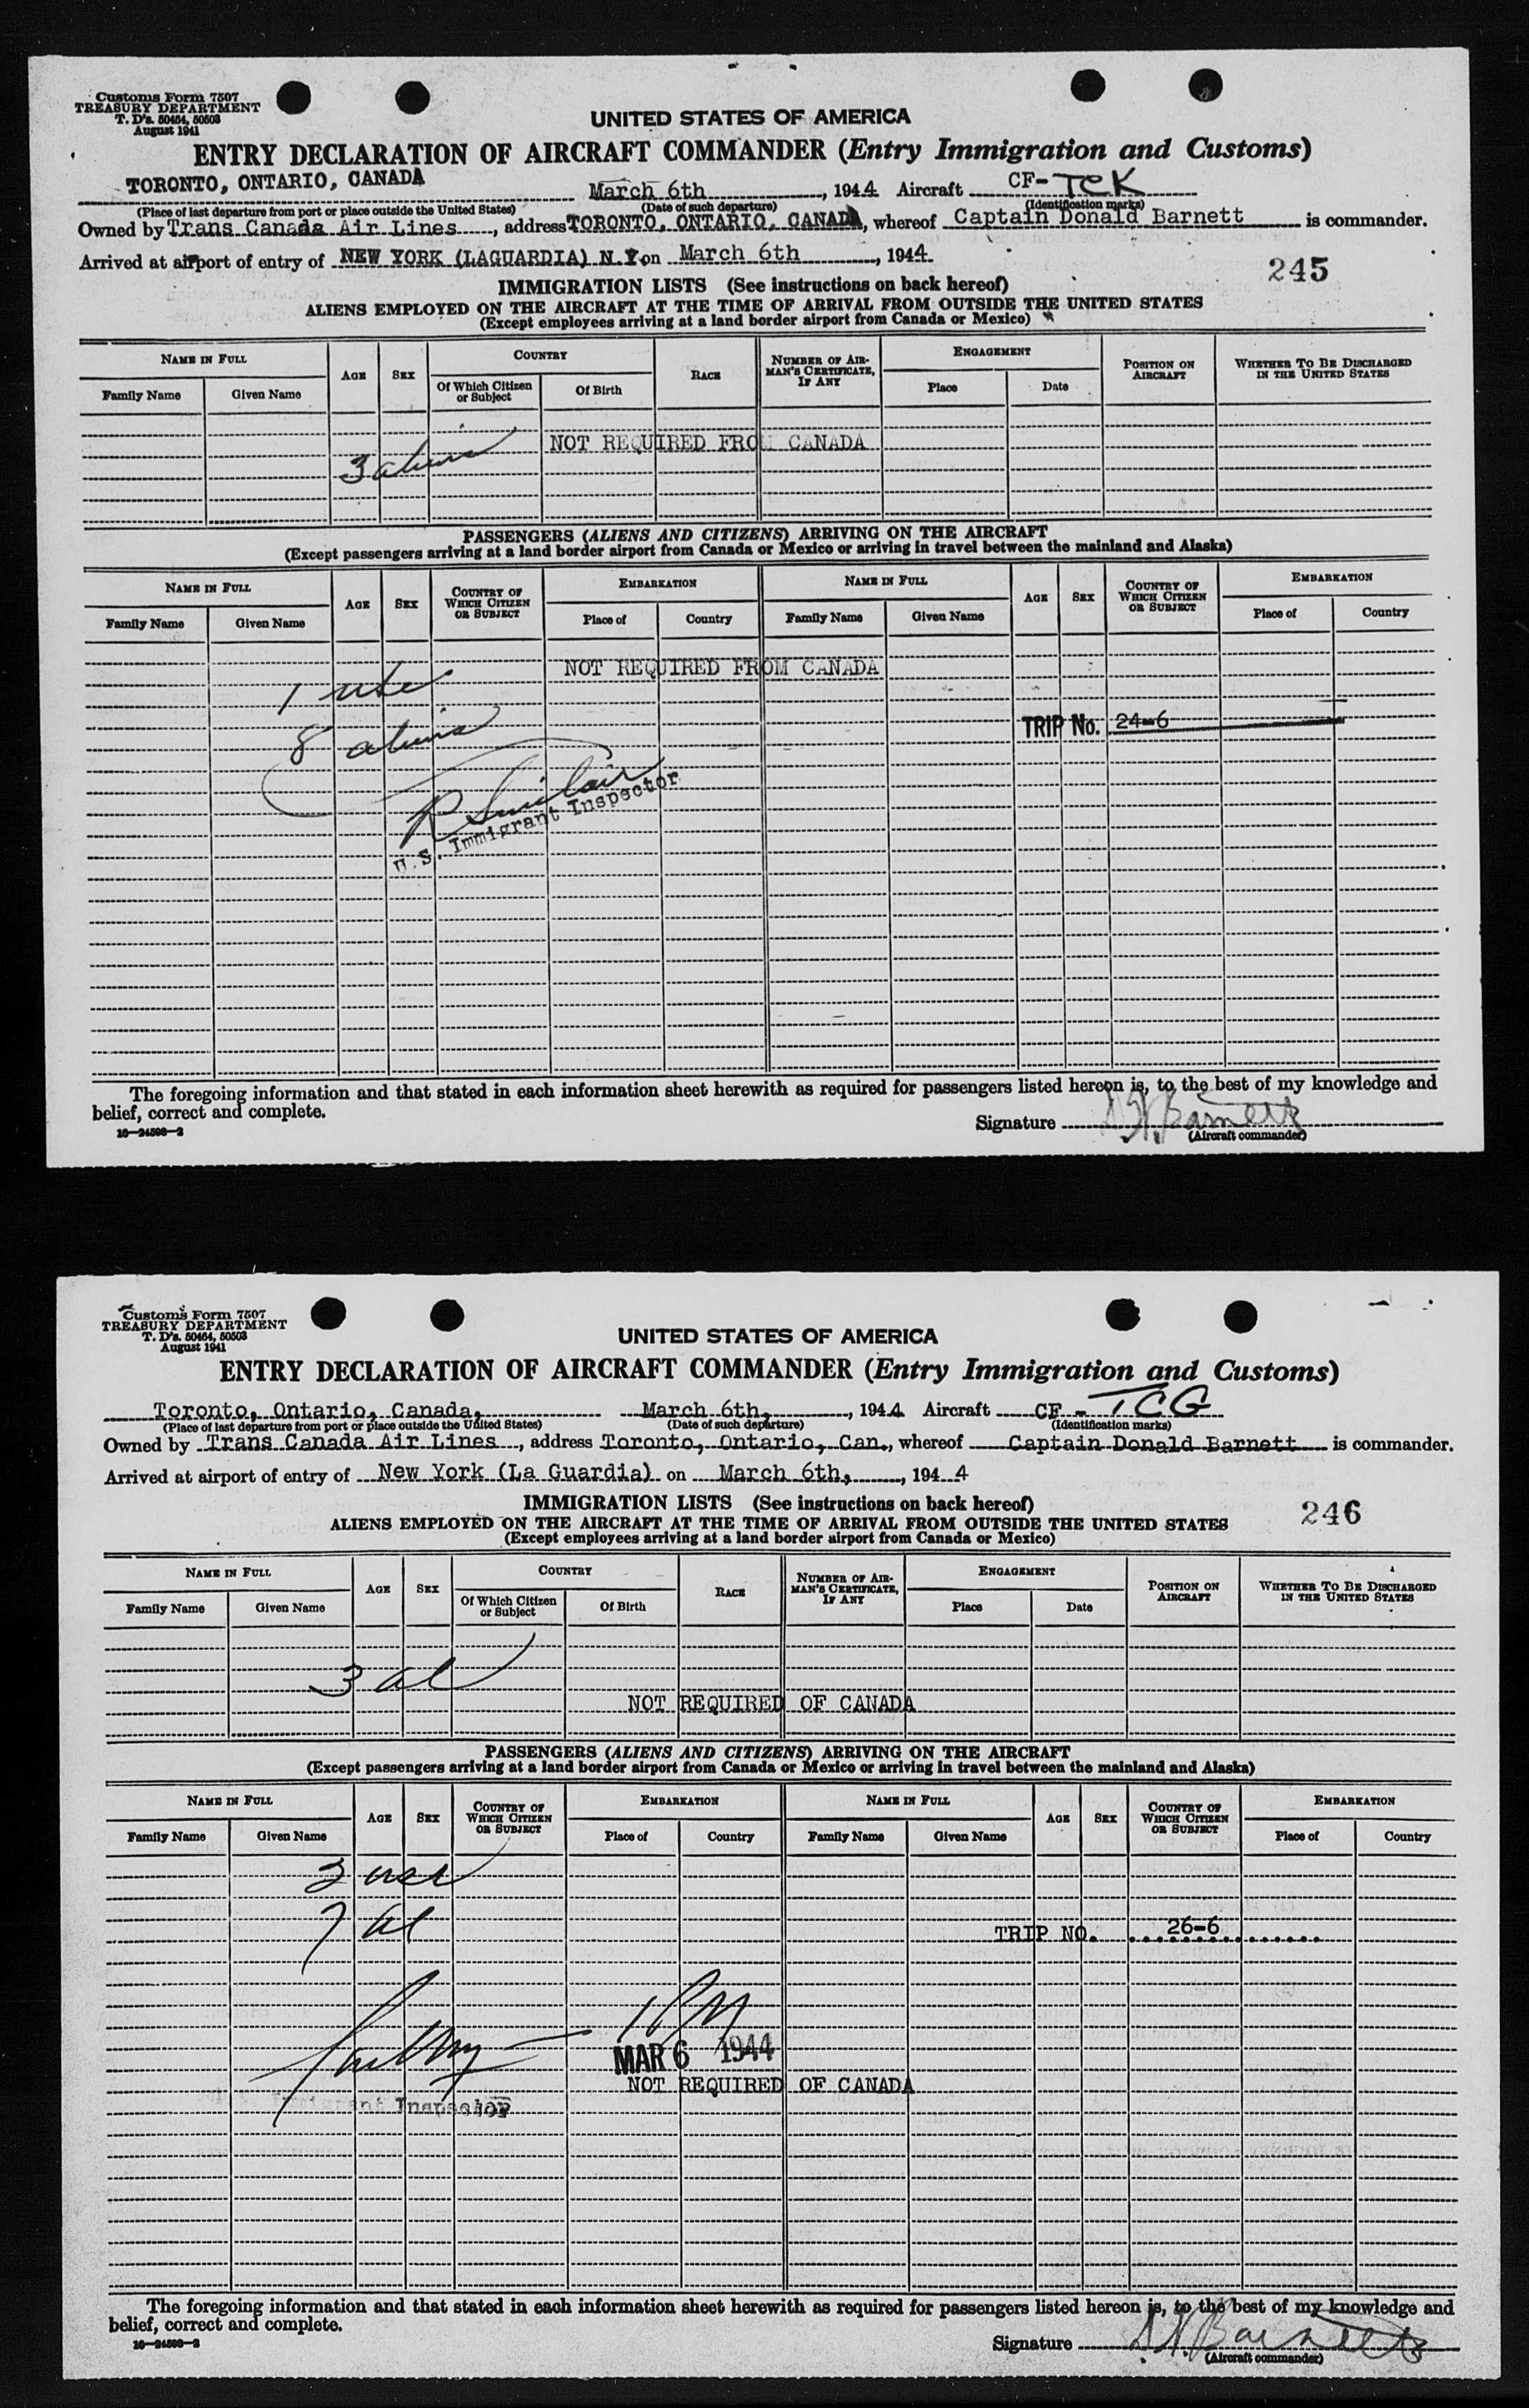 Customs Form 7507
TREASURY DEPARTMENT
T. D's. 50464, 50503
August 1941
UNITED STATES OF AMERICA
ENTRY DECLARATION OF AIRCRAFT COMMANDER (Entry Immigration and Customs)
TORONTO, ONTARIO, CANADA March 6th, 1944 Aircraft CF-TCK
(Place of last departure from port or place outside the United States) (Date of such departure) (Identification marks)
Owned by Trans Canada Air Lines, address TORONTO, ONTARIO, CANADA, whereof Captain Donald Barnett is commander.
Arrived at airport of entry of NEW YORK (LAGUARDIA) N.Y. on March 6th, 1944.
245
IMMIGRATION LISTS (See instructions on back hereof)
ALIENS EMPLOYED ON THE AIRCRAFT AT THE TIME OF ARRIVAL FROM OUTSIDE THE UNITED STATES
(Except employees arriving at a land border airport from Canada or Mexico)
NAME IN FULL AGE SEX COUNTRY RACE NUMBER OF AIRMAN'S CERTIFICATE, IF ANY ENGAGEMENT POSITION ON AIRCRAFT WHETHER TO BE DISCHARGED IN THE UNITED STATES
Family Name Given Name Of Which Citizen or Subject Of Birth Place Date
NOT REQUIRED FROM CANADA
3 aliens
PASSENGERS (ALIENS AND CITIZENS) ARRIVING ON THE AIRCRAFT
(Except passengers arriving at a land border airport from Canada or Mexico or arriving in travel between the mainland and Alaska)
NAME IN FULL AGE SEX COUNTRY OF WHICH CITIZEN OR SUBJECT EMBARKATION NAME IN FULL AGE SEX COUNTRY OF WHICH CITIZEN OR SUBJECT EMBARKATION
Family Name Given Name Place of Country Family Name Given Name Place of Country
NOT REQUIRED FROM CANADA
1
8 aliens
TRIP No. 24-6
R Sinclair
U.S. Immigrant Inspector
The foregoing information and that stated in each information sheet herewith as required for passengers listed hereon is, to the best of my knowledge and
belief, correct and complete.
Signature D. N. Barnett
(Aircraft commander)
16—24598-2
Customs Form 7507
TREASURY DEPARTMENT
T. D's. 50464, 50503
August 1941
UNITED STATES OF AMERICA
ENTRY DECLARATION OF AIRCRAFT COMMANDER (Entry Immigration and Customs)
Toronto, Ontario, Canada, March 6th, 1944 Aircraft CF - TCG
(Place of last departure from port or place outside the United States) (Date of such departure) (Identification marks)
Owned by Trans Canada Air Lines, address Toronto, Ontario, Can., whereof Captain Donald Barnett is commander.
Arrived at airport of entry of New York (La Guardia) on March 6th, 1944
246
IMMIGRATION LISTS (See instructions on back hereof)
ALIENS EMPLOYED ON THE AIRCRAFT AT THE TIME OF ARRIVAL FROM OUTSIDE THE UNITED STATES
(Except employees arriving at a land border airport from Canada or Mexico)
NAME IN FULL AGE SEX COUNTRY RACE NUMBER OF AIRMAN'S CERTIFICATE, IF ANY ENGAGEMENT POSITION ON AIRCRAFT WHETHER TO BE DISCHARGED IN THE UNITED STATES
Family Name Given Name Of Which Citizen or Subject Of Birth Place Date
3 al
NOT REQUIRED OF CANADA
PASSENGERS (ALIENS AND CITIZENS) ARRIVING ON THE AIRCRAFT
(Except passengers arriving at a land border airport from Canada or Mexico or arriving in travel between the mainland and Alaska)
NAME IN FULL AGE SEX COUNTRY OF WHICH CITIZEN OR SUBJECT EMBARKATION NAME IN FULL AGE SEX COUNTRY OF WHICH CITIZEN OR SUBJECT EMBARKATION
Family Name Given Name Place of Country Family Name Given Name Place of Country
3
7 al
TRIP NO. 26-6
1 PM
MAR 6 1944
NOT REQUIRED OF CANADA
Immigrant Inspector
The foregoing information and that stated in each information sheet herewith as required for passengers listed hereon is, to the best of my knowledge and
belief, correct and complete.
Signature D. N. Barnett
(Aircraft commander)
16—24598-2